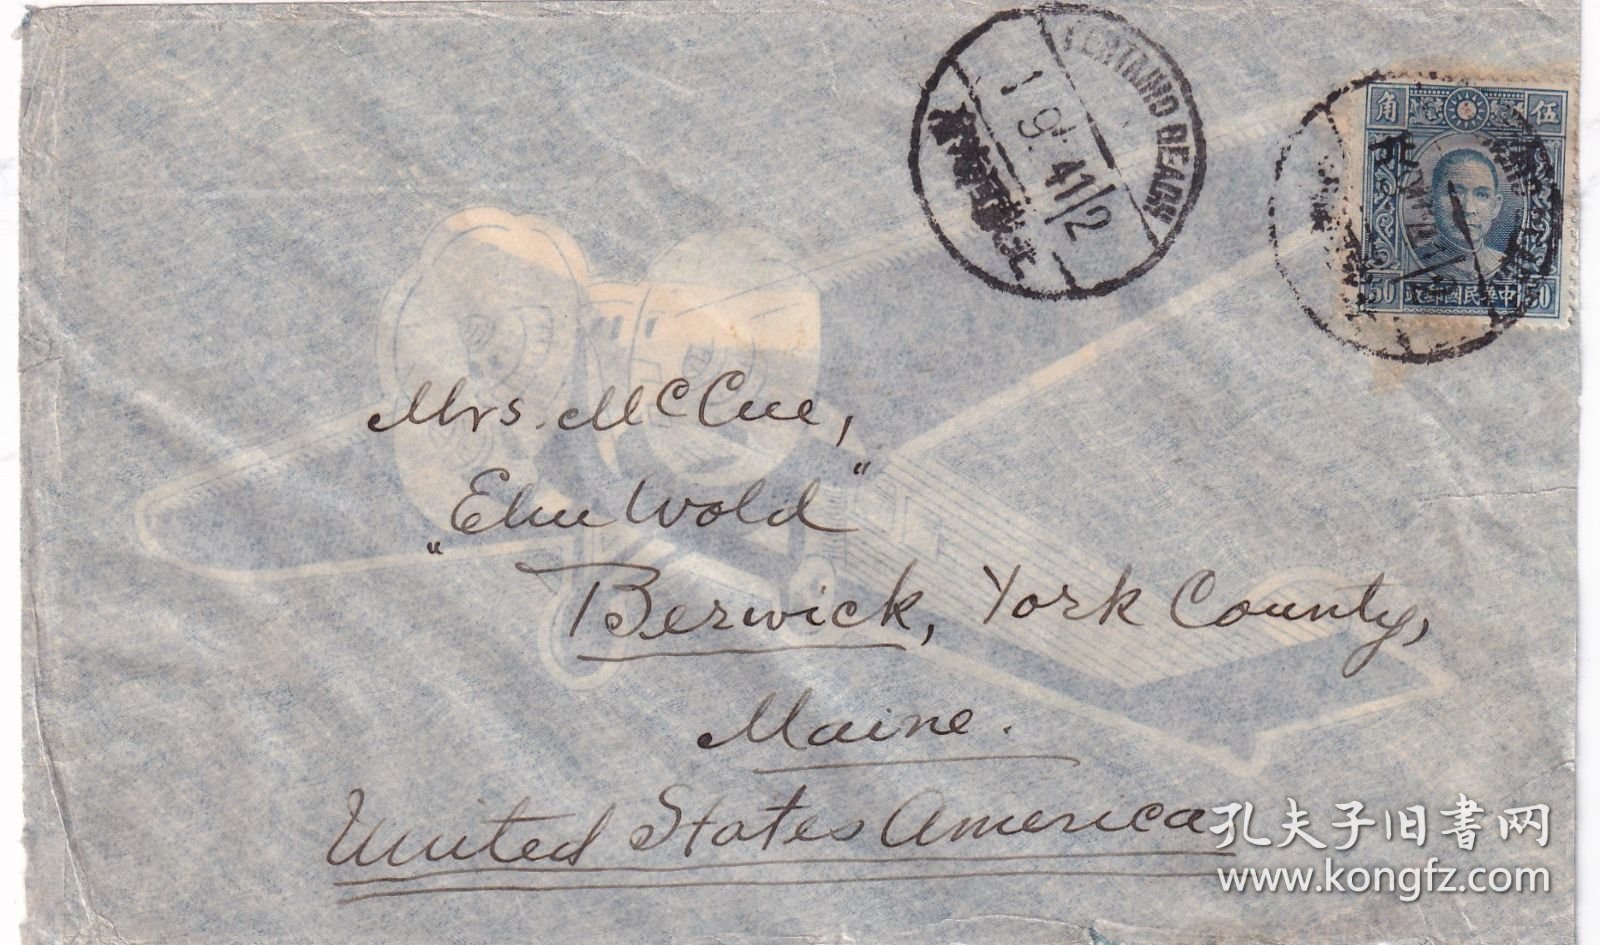 PEITAIHO BEACH
1 9. 41/2
伍 角
50 中華民國郵政 50
Mrs. McCue,
"Elm Wold"
Berwick, York County,
Maine.
United States America
孔夫子旧書网
www.kongfz.com